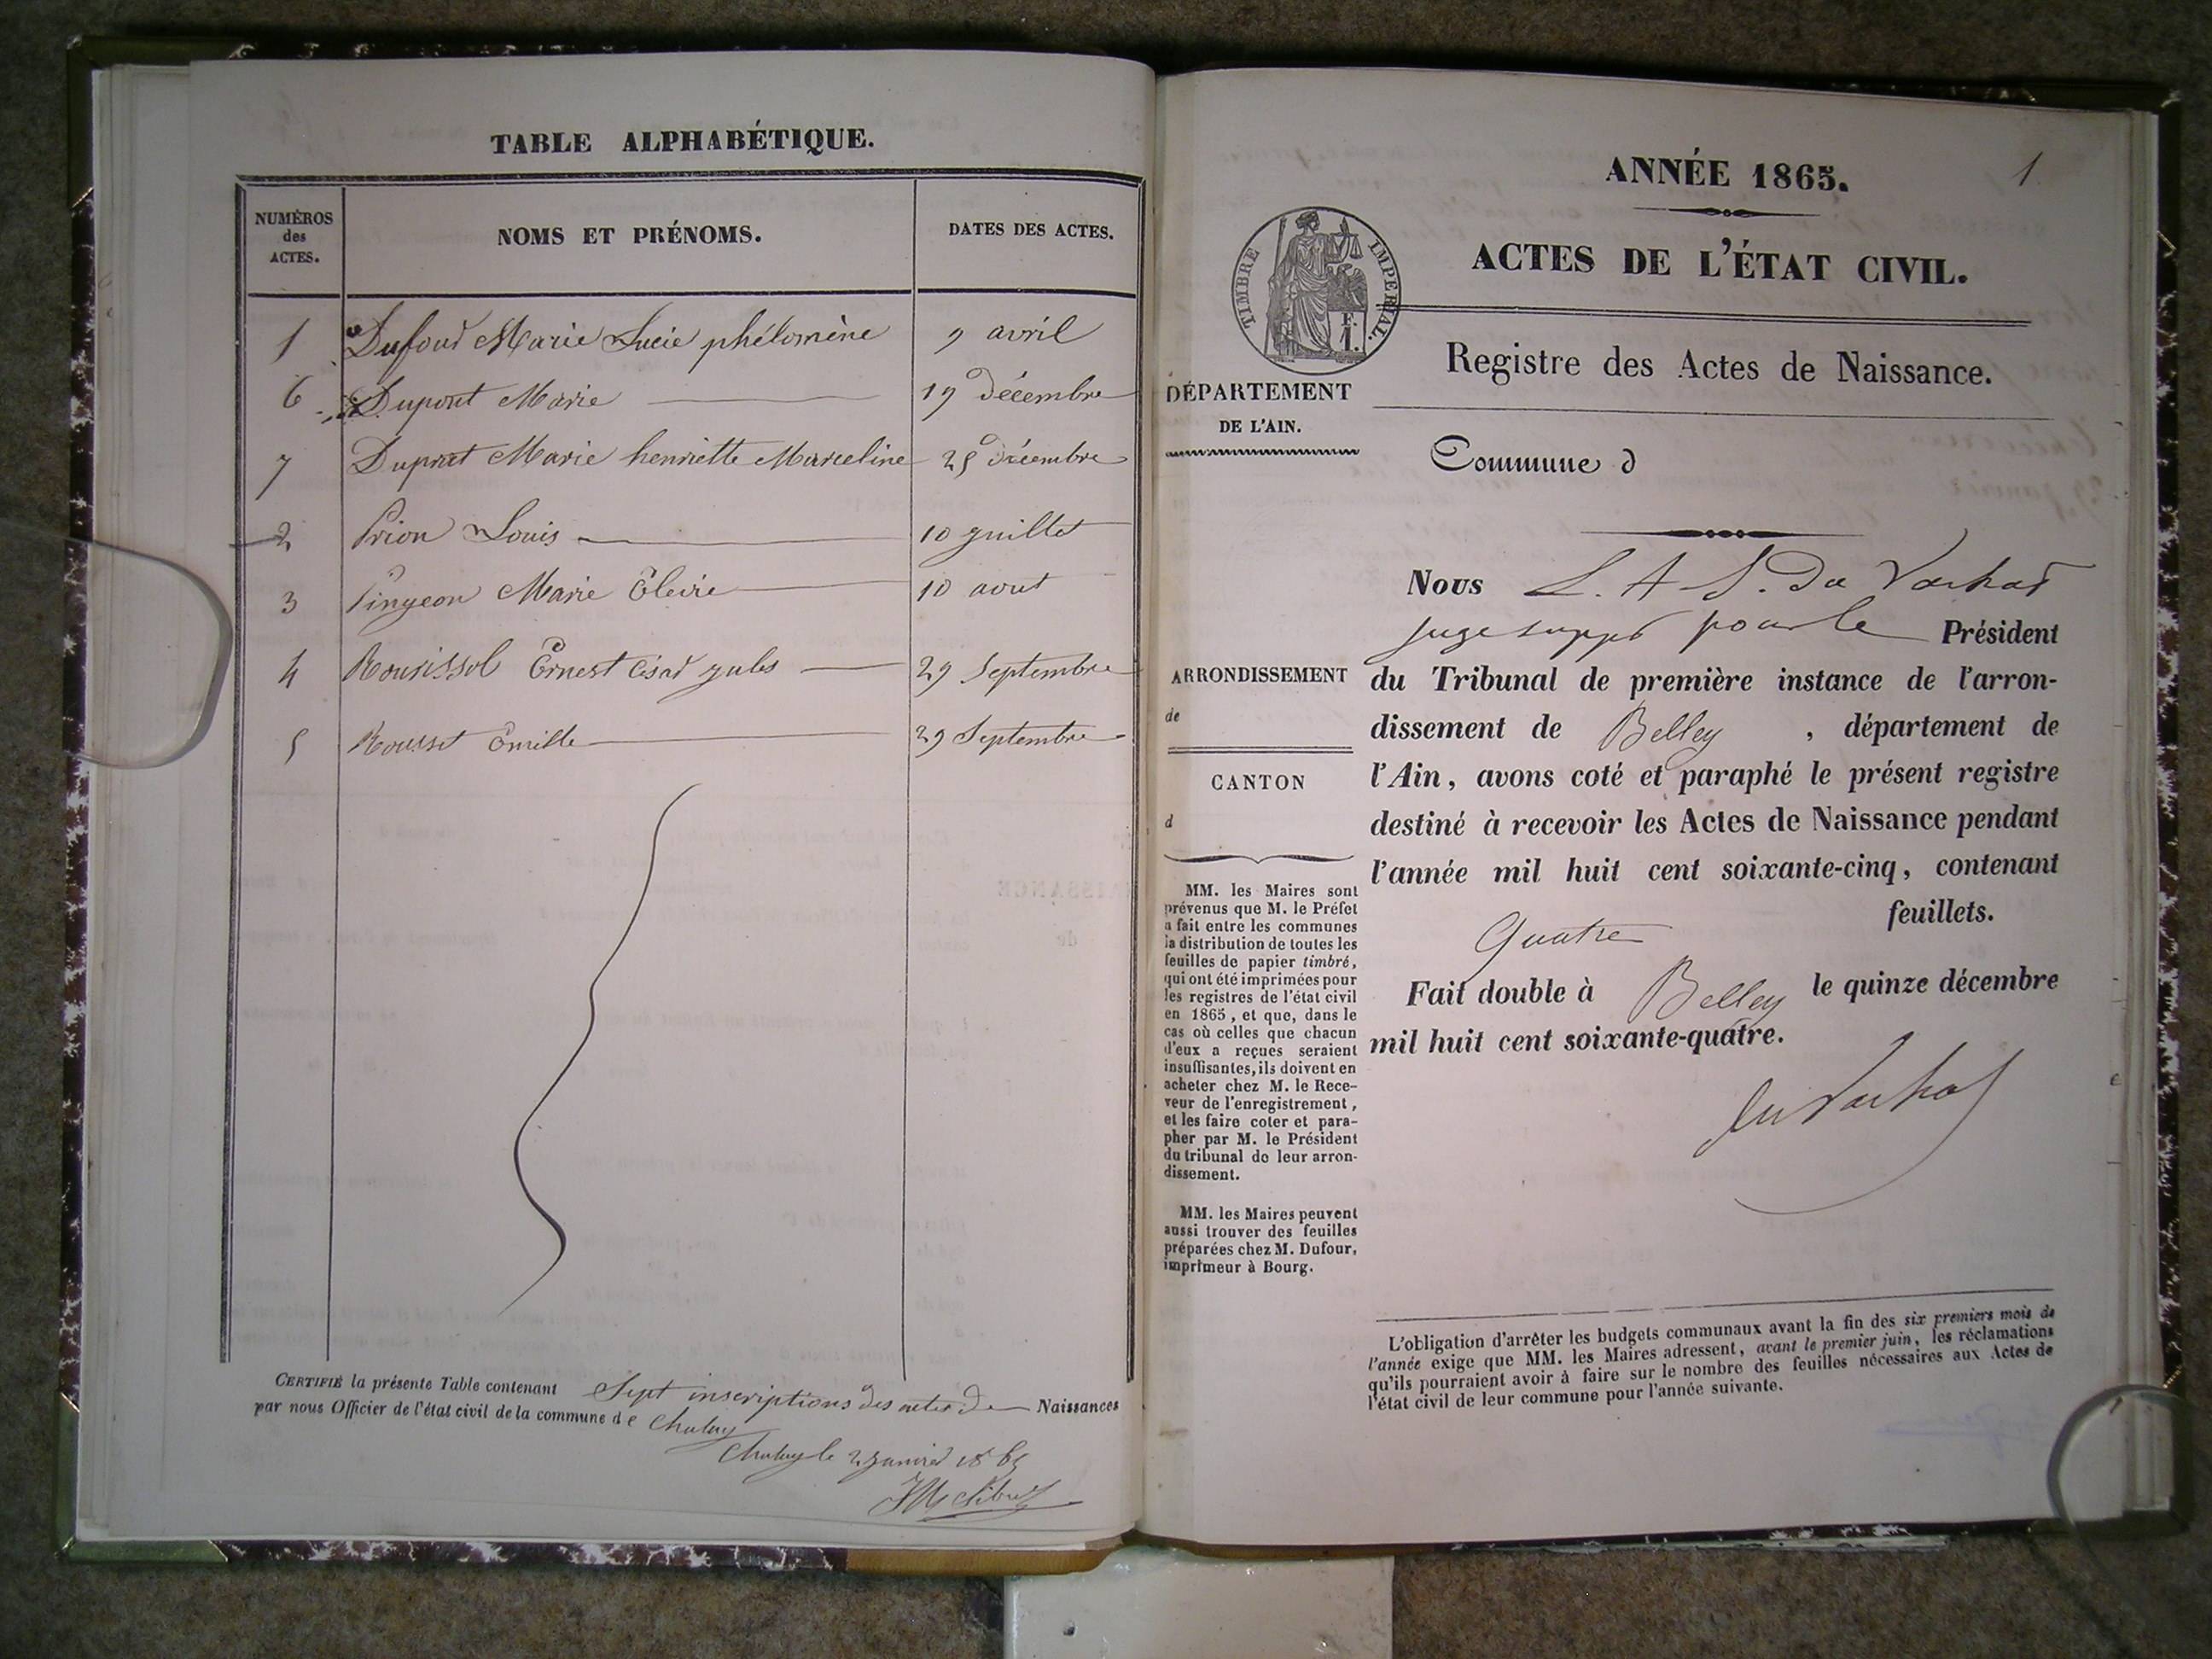 TABLE ALPHABÉTIQUE.
NUMÉROS des ACTES.
NOMS ET PRÉNOMS.
DATES DES ACTES.
1 Dufour Marie Lucie phélomène 9 avril
6 Dupont Marie 19 décembre
7 Duprat Marie henriette Marceline 25 décembre
2 Prion Louis 10 juillet
3 Pingeon Marie 10 aout
4 Rourissol Ernest César jules 29 Septembre
5 Rousset Emille 29 Septembre
CERTIFIÉ la présente Table contenant Sept inscriptions des actes de Naissances
par nous Officier de l'état civil de la commune de
le 2 janvier 1865
1
ANNÉE 1865.
ACTES DE L'ÉTAT CIVIL.
TIMBRE IMPÉRIAL.
F.
1.
Registre des Actes de Naissance.
DÉPARTEMENT
DE L'AIN.
Commune d
ARRONDISSEMENT
de
CANTON
d
MM. les Maires sont
prévenus que M. le Préfet
a fait entre les communes
la distribution de toutes les
feuilles de papier timbré,
qui ont été imprimées pour
les registres de l'état civil
en 1865, et que, dans le
cas où celles que chacun
d'eux a reçues seraient
insuffisantes, ils doivent en
acheter chez M. le Rece-
veur de l'enregistrement,
et les faire coter et para-
pher par M. le Président
du tribunal de leur arron-
dissement.
MM. les Maires peuvent
aussi trouver des feuilles
préparées chez M. Dufour,
imprimeur à Bourg.
Nous L. A
juge suppt pour le Président
du Tribunal de première instance de l'arron-
dissement de Belley, département de
l'Ain, avons coté et paraphé le présent registre
destiné à recevoir les Actes de Naissance pendant
l'année mil huit cent soixante-cinq, contenant
Quatre feuillets.
Fait double à Belley le quinze décembre
mil huit cent soixante-quatre.
L'obligation d'arrêter les budgets communaux avant la fin des six premiers mois de
l'année exige que MM. les Maires adressent, avant le premier juin, les réclamations
qu'ils pourraient avoir à faire sur le nombre des feuilles nécessaires aux Actes de
l'état civil de leur commune pour l'année suivante.